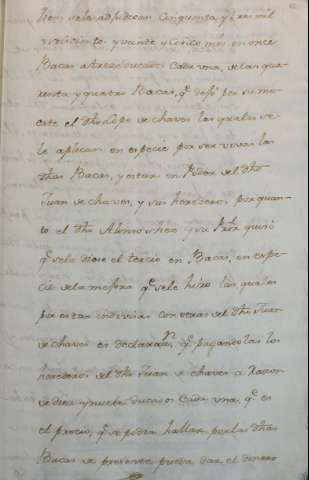 Iten se le adjudican cinquenta y tres mil
y seiscientos y veinte y cinco mrs en once
Bacas a trece ducados cada una, de las qua-
renta y quatro Bacas, q.e dejó por su mu-
erte el dho Lope de chaves las quales se
le aplican en especie por ser vivas las
dhas Bacas, y estar en Poder del dho
Juan de chaves, y sus herederos por quan-
to el dho Alonso su Pror quiso
q.e se le diese el tercio en Bacas, en espe-
cie de la mejora q.e se le hizo las quales
por estar indivisas con otras del dho Juan
de chaves en declararon, q.e pagandolas los
herederos del dho Juan de chaves a razon
de diez y nueve ducados cada una, q.e es
el precio, q.e se podra hallar por las dhas
Bacas de presente pueda dar el dinero